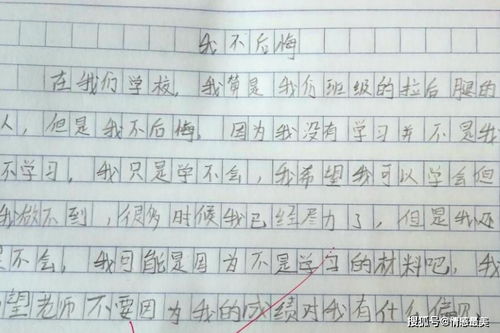 我不后悔
在我们学校，我算是我们班级的拉后腿的
人，但是我不后悔，因为我没有学习并不是我
不学习，我只是学不会，我希望我可以学会但
我做不到，很多时候我已经尽力了，但是我还
是不会，我可能是因为不是学习的材料吧，我
望老师不要因为我的成绩对我有什么偏见
搜狐号@情感最美